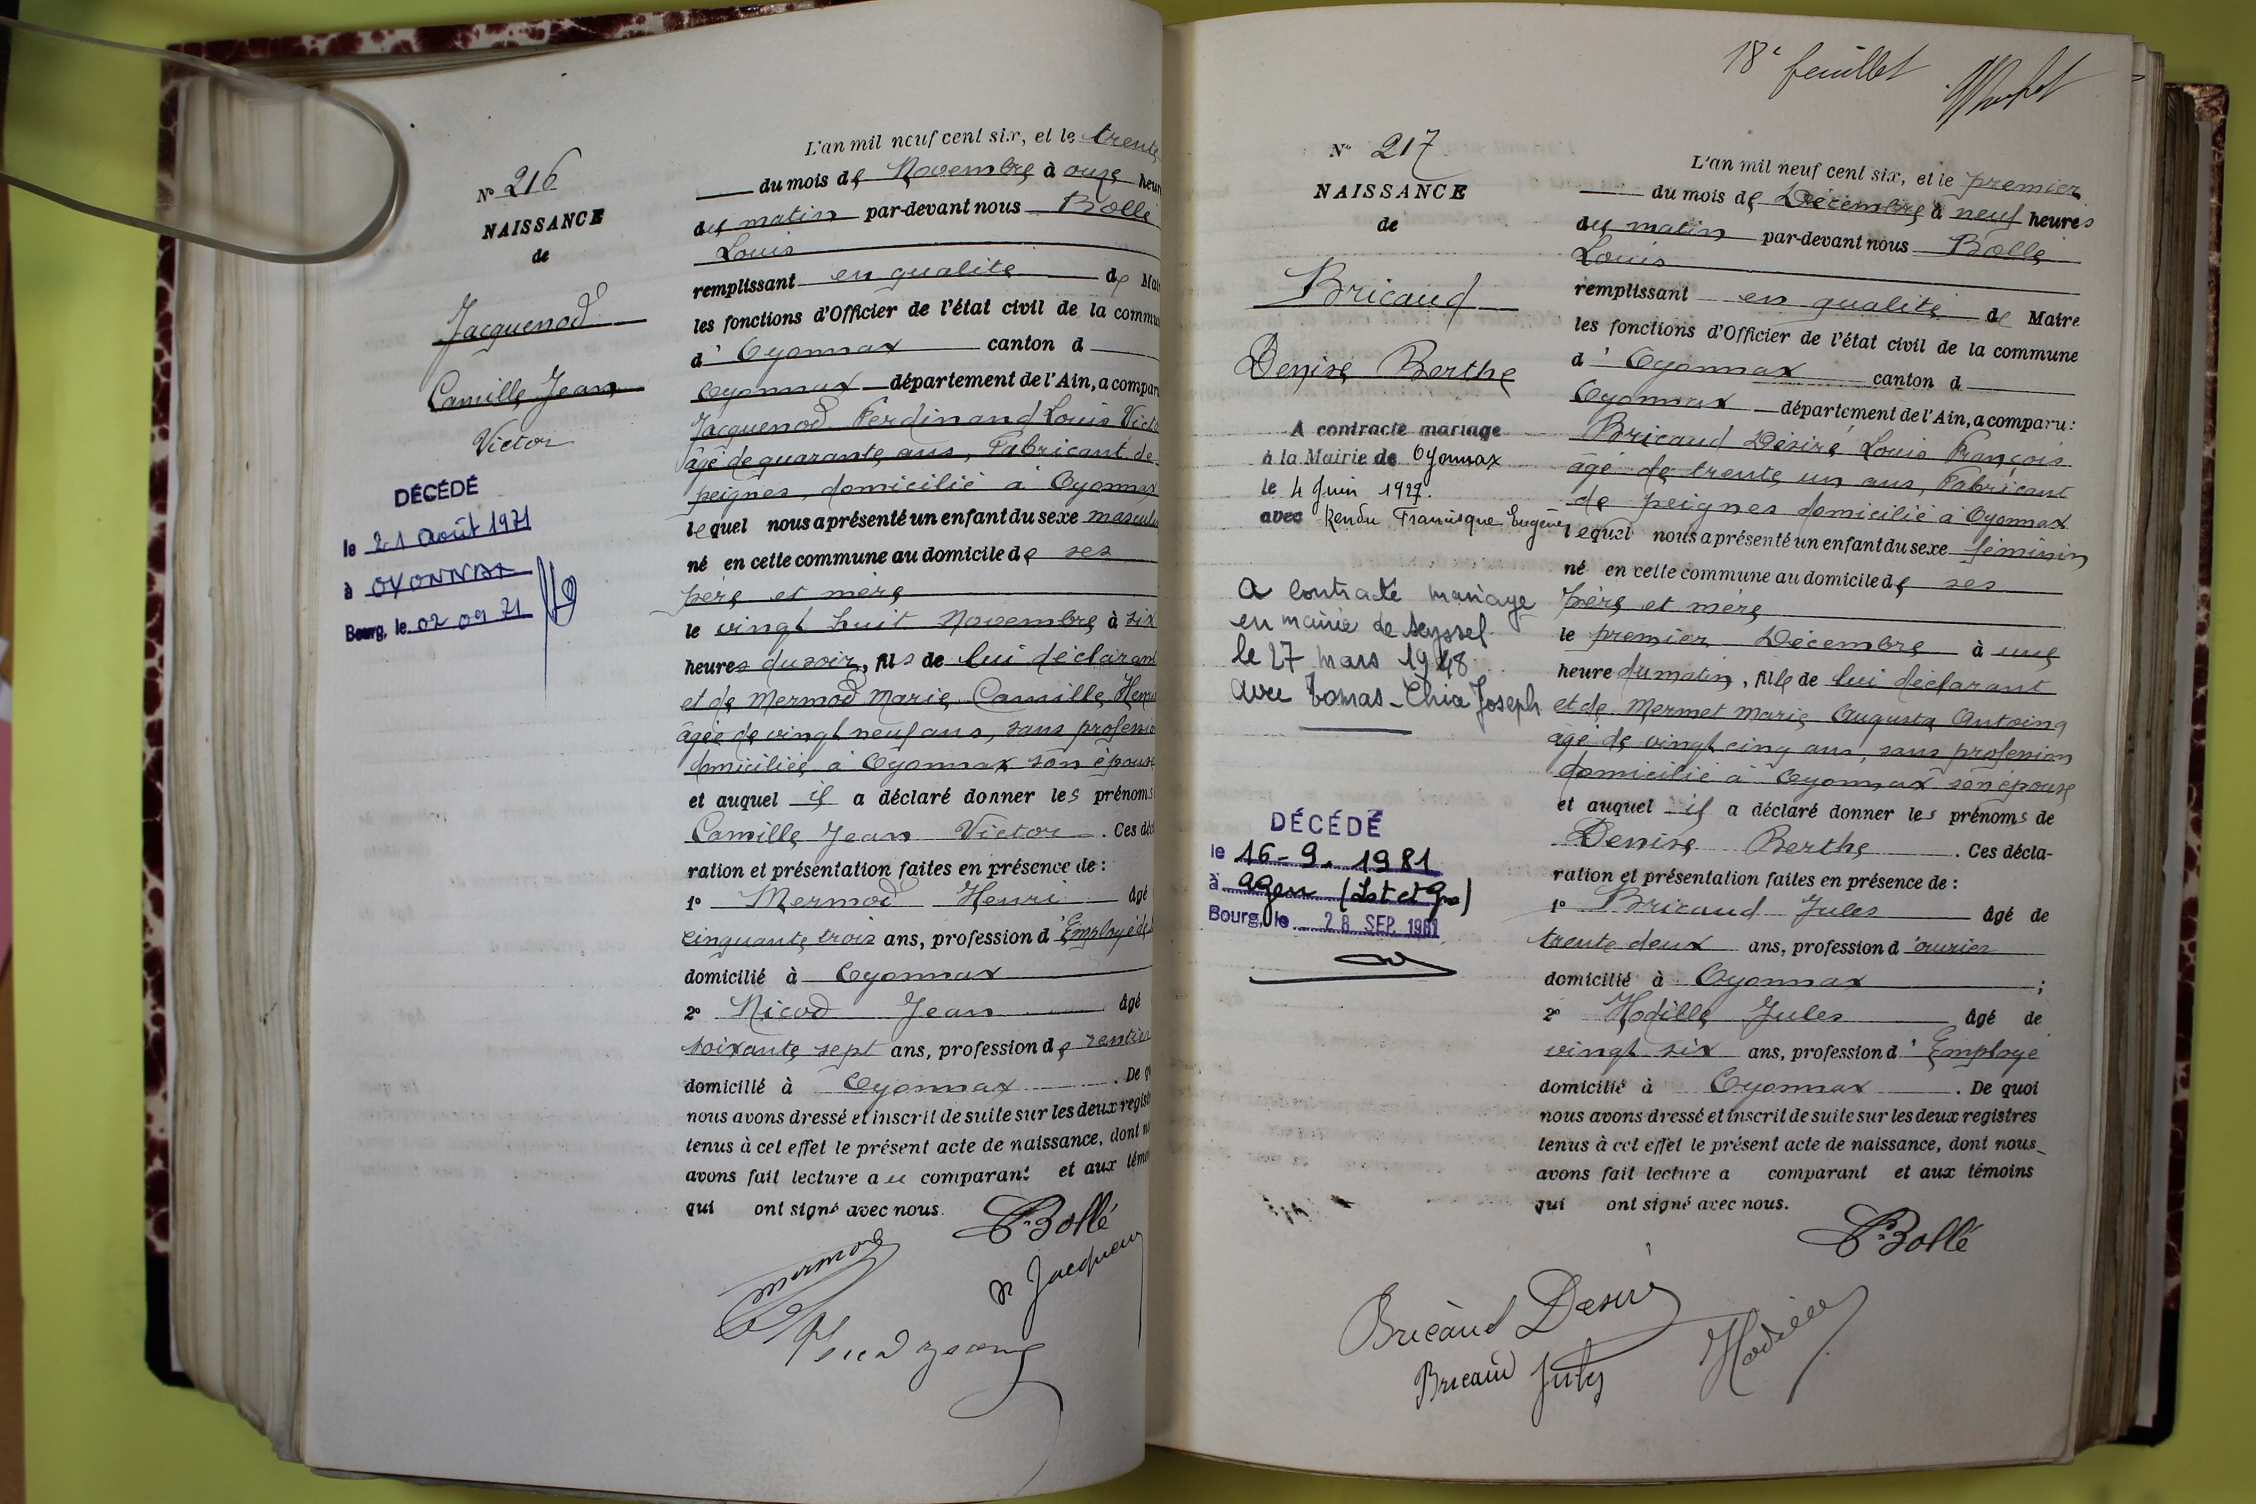 N° 216
NAISSANCE
de
Jacquenod
Camille Jean
Victor
DÉCÉDÉ
le 21 Août 1971
à OYONNAX
Bourg, le 02 09 71
L'an mil neuf cent six, et le trente
du mois de Novembre à onze heur
du matin par-devant nous Bollé
Louis
remplissant en qualité de Mai
les fonctions d'Officier de l'état civil de la commu
d' Oyonnax canton d
Oyonnax département de l'Ain, a compar
Jacquenod Ferdinand Louis Victo
âgé de quarante ans, Fabricant de
peignes, domicilié à Oyonnax
lequel nous a présenté un enfant du sexe masculi
né en cette commune au domicile de ses
père et mère
le vingt huit Novembre à six
heures du soir, fils de lui déclarant
et de Mermod Marie Camille Henri
âgée de vingt neuf ans, sans professio
domiciliée à Oyonnax son épouse
et auquel il a déclaré donner les prénoms
Camille Jean Victor. Ces déc
ration et présentation faites en présence de :
1° Mermod Henri âgé
cinquante trois ans, profession d'Employé de
domicilié à Oyonnax
2° Nicod Jean âgé
soixante sept ans, profession de rentier
domicilié à Oyonnax. De q
nous avons dressé et inscrit de suite sur les deux regist
tenus à cet effet le présent acte de naissance, dont n
avons fait lecture au comparant et aux témo
qui ont signé avec nous.
L. Bollé
Mermod
Jacquen
18e feuillet
N° 217
NAISSANCE
de
Bricaud
Denise Berthe
A contracté mariage
à la Mairie de Oyonnax
le 4 Juin 1927.
avec Rendu Francisque Eugène
a contracté mariage
en mairie de Seyssel
le 27 mars 1948
avec Tomas-Chia Joseph
DÉCÉDÉ
le 16-9-1981
à Agen (Lot et Gne)
Bourg, le 28 SEP. 1981
L'an mil neuf cent six, et le premier
du mois de Décembre à neuf heures
du matin par-devant nous Bollé
Louis
remplissant en qualité de Maire
les fonctions d'Officier de l'état civil de la commune
d' Oyonnax canton d
Oyonnax département de l'Ain, a comparu :
Bricaud Désiré Louis François
âgé de trente un ans, Fabricant
de peignes domicilié à Oyonnax
lequel nous a présenté un enfant du sexe féminin
né en cette commune au domicile de ses
père et mère
le premier Décembre à une
heure du matin, fille de lui déclarant
et de Mermet Marie Augusta Antoina
âgé de vingt cinq ans, sans profession
domicilié à Oyonnax son épouse
et auquel il a déclaré donner les prénoms de
Denise Berthe. Ces décla-
ration et présentation faites en présence de :
1° Bricaud Jules âgé de
trente deux ans, profession d'ouvrier
domicilié à Oyonnax ;
2° Hodille Jules âgé de
vingt six ans, profession d'Employé
domicilié à Oyonnax. De quoi
nous avons dressé et inscrit de suite sur les deux registres
tenus à cet effet le présent acte de naissance, dont nous
avons fait lecture a comparant et aux témoins
qui ont signé avec nous.
L. Bollé
Bricaud Desiré
Bricaud Jules
Hodille